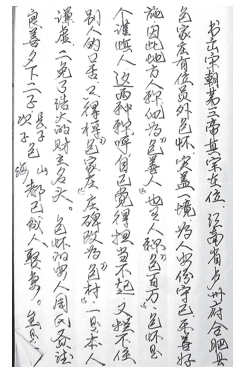 书出宋朝第三帝真宗在位，江南省卢州府合肥县
包家庄有位员外包怀，家盖一境，为人安份守己，乐善好
施，因此地方人称他为“包善人”，也有人称“包百万”。包怀是
个谨慎人，这两种称呼，自己觉得担当不起，又拦不住
别人的口舌，只得将“包家庄”庄碑改为“包村”，一是本人
谦虚，二免了诰大的财主名头。包怀的安人周氏贤德
良善，夕下二子，长子包山
次子包海，都已成人取妻。生是